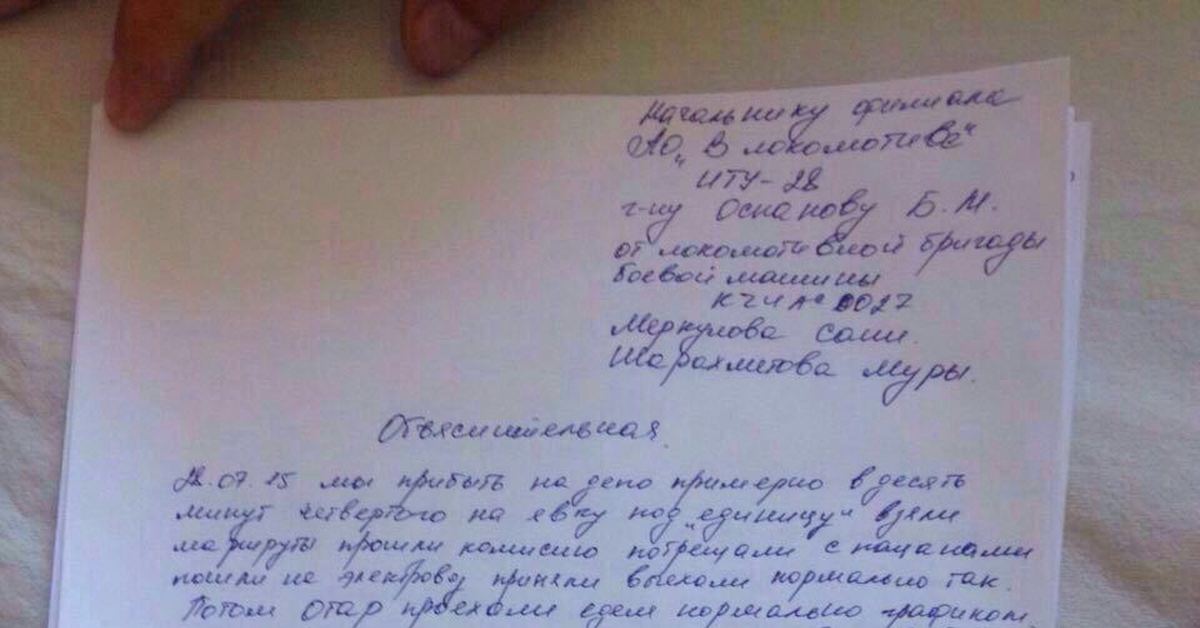 Начальнику филиала
АО „В локомотиве“
ИТУ-28
г-ну Оспанову Б.М.
от локомотивной бригады
боевой машины
KZ4Ac 0027
Меркулова Саши.
Шарахметова Муры.
Объяснительная
28.07.15 мы прибыть на депо примерно в десять
минут четвертого на явку под „единицу“ взяли
маршруты прошли комисию потрещали с пацанами
пошли на электровоз приняли выехали нормально так.
Потом Отар проехали едем нормально графиком